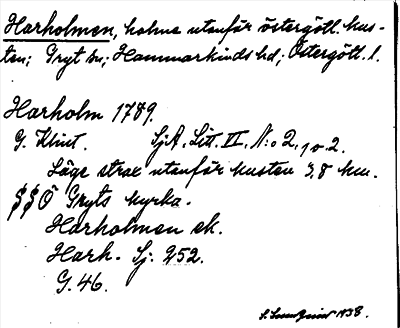 Harholmen, holme utanför östergötl. kus-
ten; Gryt sn; Hammarkinds hd; Östergötl. l.
Harholm 1789.
G. Klint. SjA, Litt. II, N:o 2, 1 o 2.
Läge strax utanför kusten 3,8 km.
SSÖ Gryts kyrka.
Harholmen ek.
Harh. Sj: 252.
G. 46.
1938.